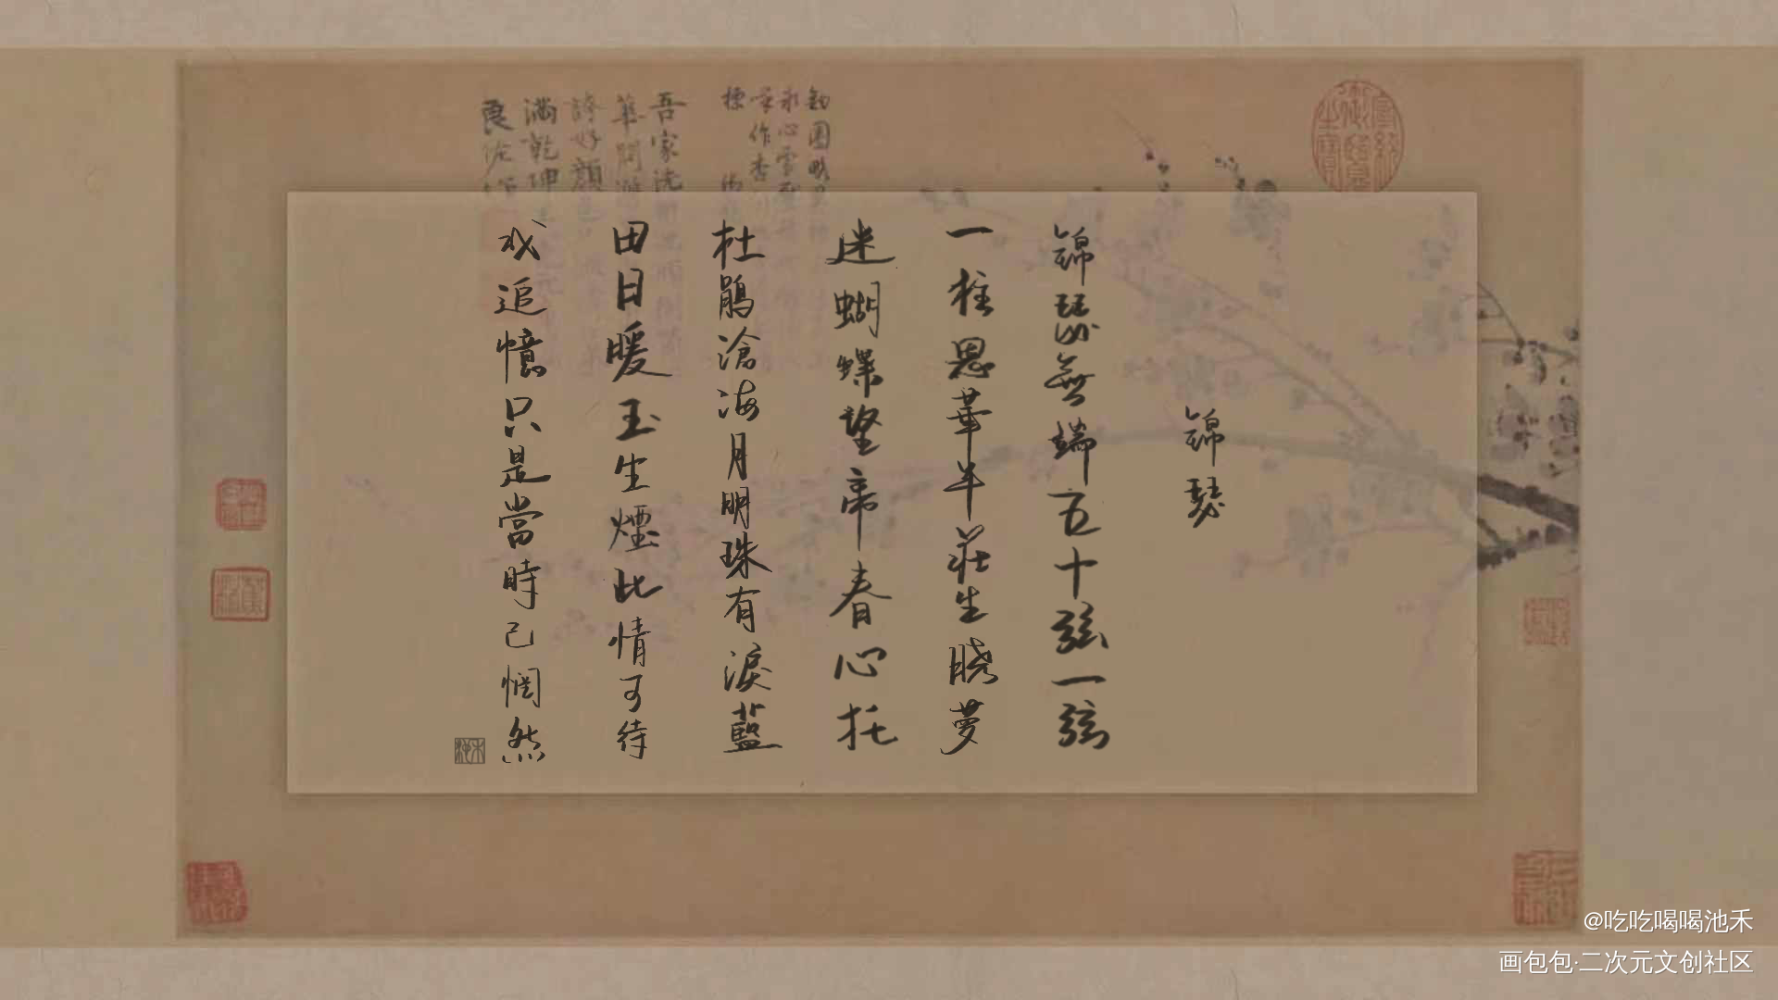 錦瑟
錦瑟無端五十弦一弦
一柱思華年莊生曉夢
迷蝴蝶望帝春心托
杜鵑滄海月明珠有淚藍
田日暖玉生煙此情可待
成追憶只是當時已惘然
吾家洗
誇好顏色
滿乾坤
良佐
@吃吃喝喝池禾
画包包·二次元文创社区